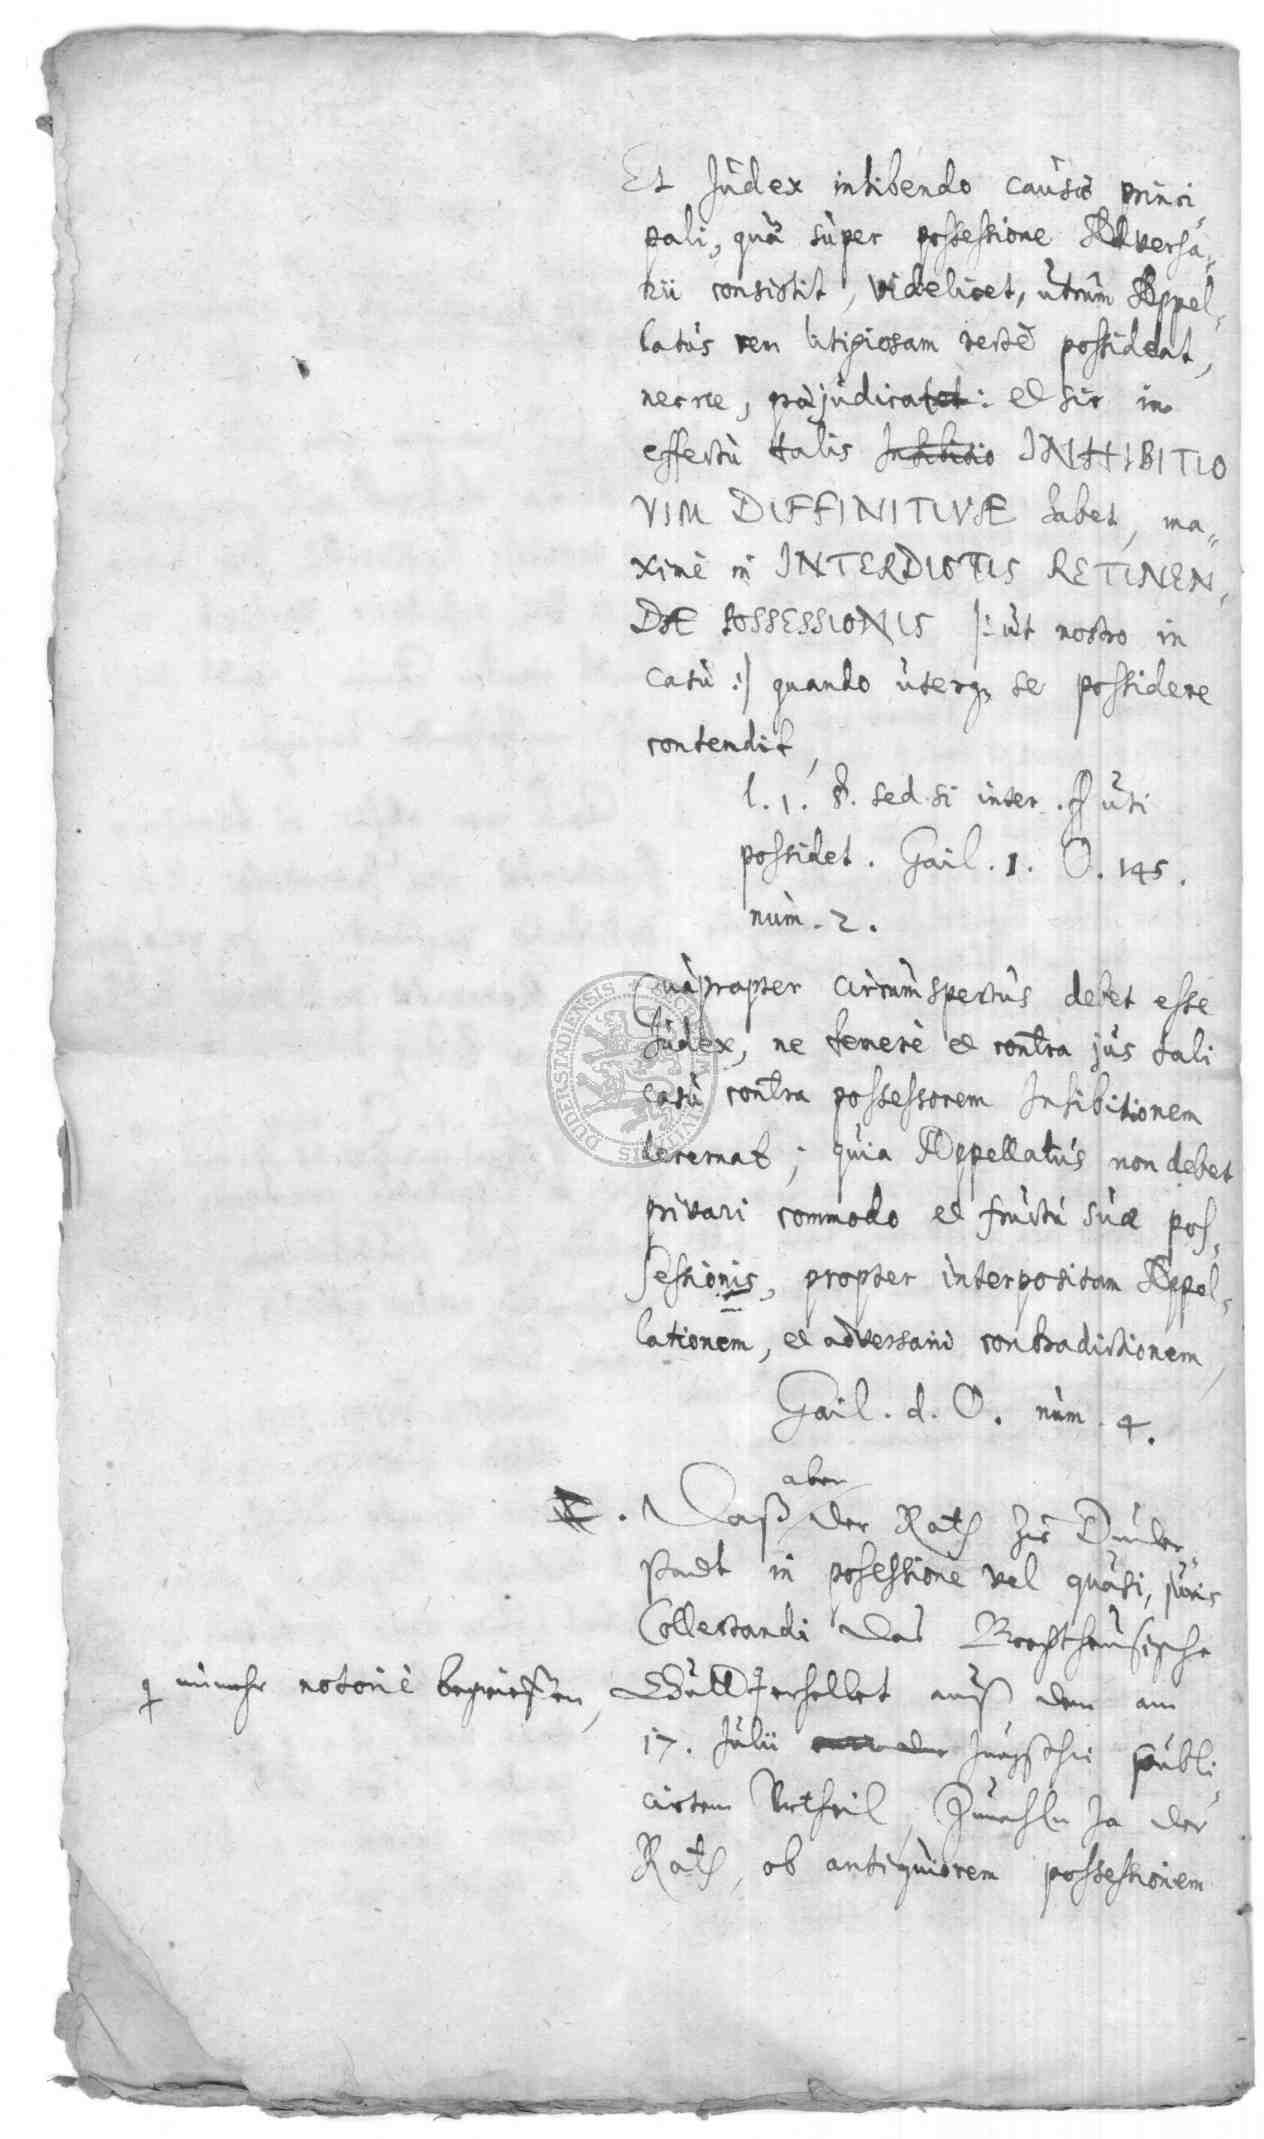 Et Judex inhibendo causæ princi-
pali, quæ super possessione Adversa-
rii consistit, videlicet, utrum Appel-
latus rem litigiosam rectè possideat,
necne, præjudicat: et sic in
effectu talis Inhibitio INHIBITIO
VIM DIFFINITIVÆ habet, ma-
ximè in INTERDICTIS RETINEN-
DÆ POSSESSIONIS |: ut nostro in
casu :| quando uterq, se possidere
contendit,
l. 1. §. sed si inter. ff uti
possidet. Gail. 1. O. 145.
num. 2.
Quapropter circumspectus debet esse
Judex, ne temerè et contra jus tali
casu contra possessorem Inhibitionem
decernat; quia Appellatus non debet
privari commodo et fructu suæ pos-
sessionis, propter interpositam Appel-
lationem, et adversarii contradictionem,
Gail. d. O. num. 4.
aber
Daß der Rath zue Duder-
stadt in possessione vel quasi, juris
Collectandi das
nunmehr notoriè begrieffen,
erhellet auß dem am
17. Julii jüngsthin publi-
cirtem Urtheil, ja der
Rath, ob antiquiorem possessionem
SIGILLUM CIVITATIS DUDERSTADIENSIS